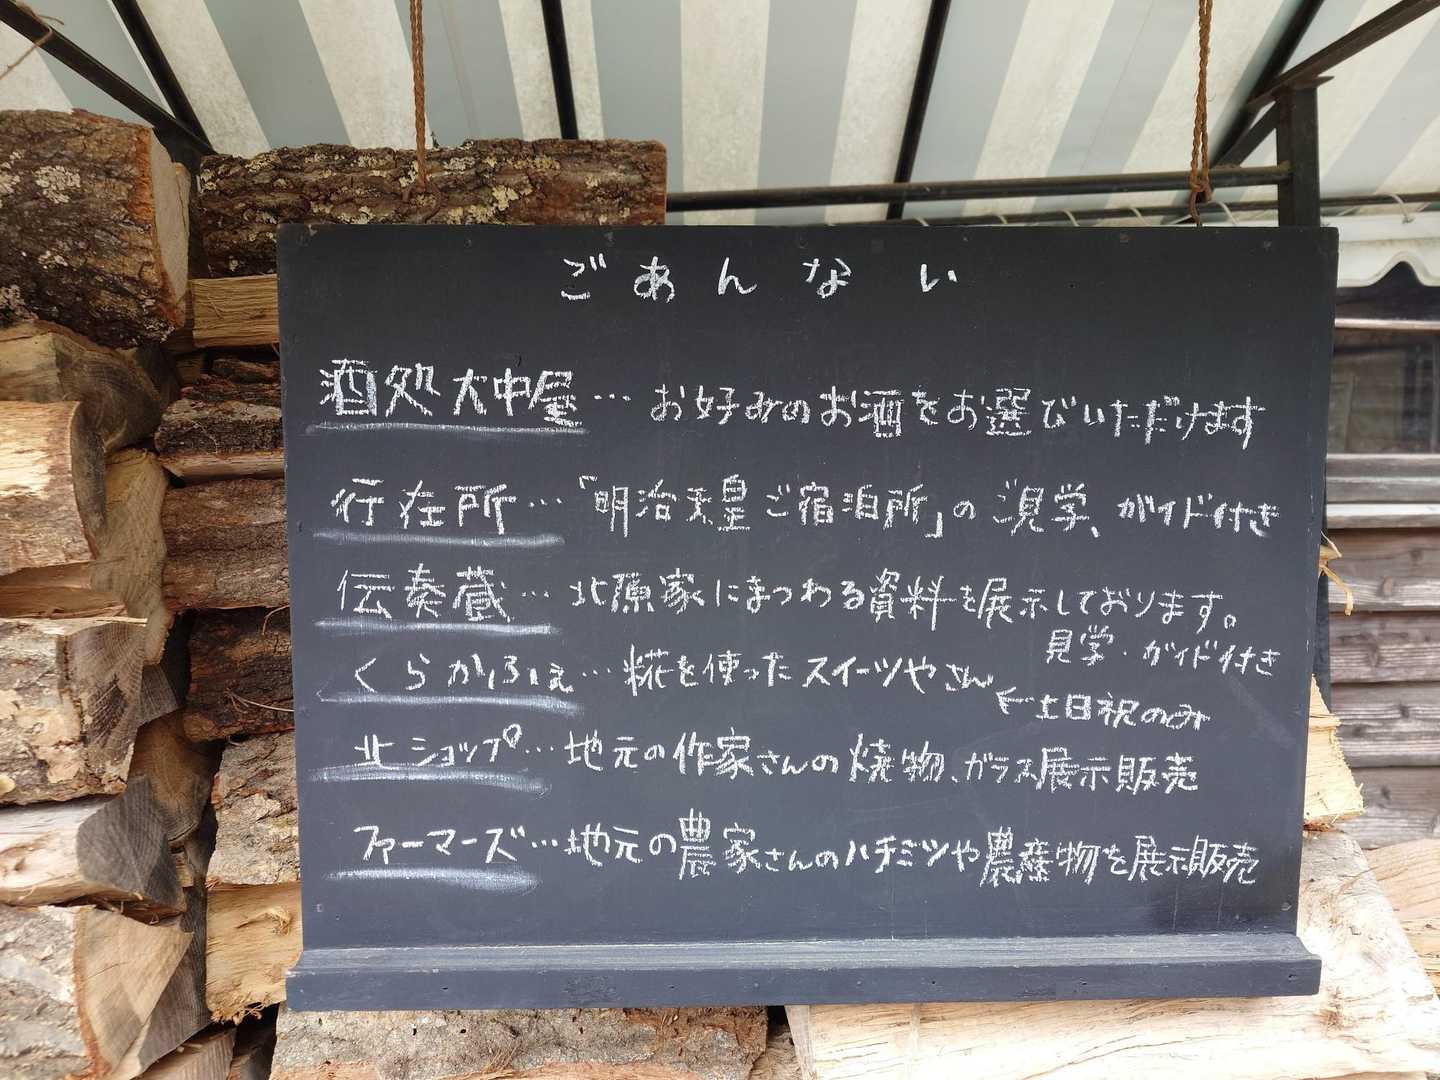 ごあんない
酒処 大中屋… お好みのお酒をお選びいただけます
行在所…「明治天皇ご宿泊所」のご見学、ガイド付き
伝奏蔵… 北原家にまつわる資料を展示しております。
見学・ガイド付き
くらかふぇ…糀を使ったスイーツやさん
土日祝のみ
北ショップ…地元の作家さんの焼物、ガラス展示販売
ファーマーズ…地元の農家さんのハチミツや農産物を展示販売